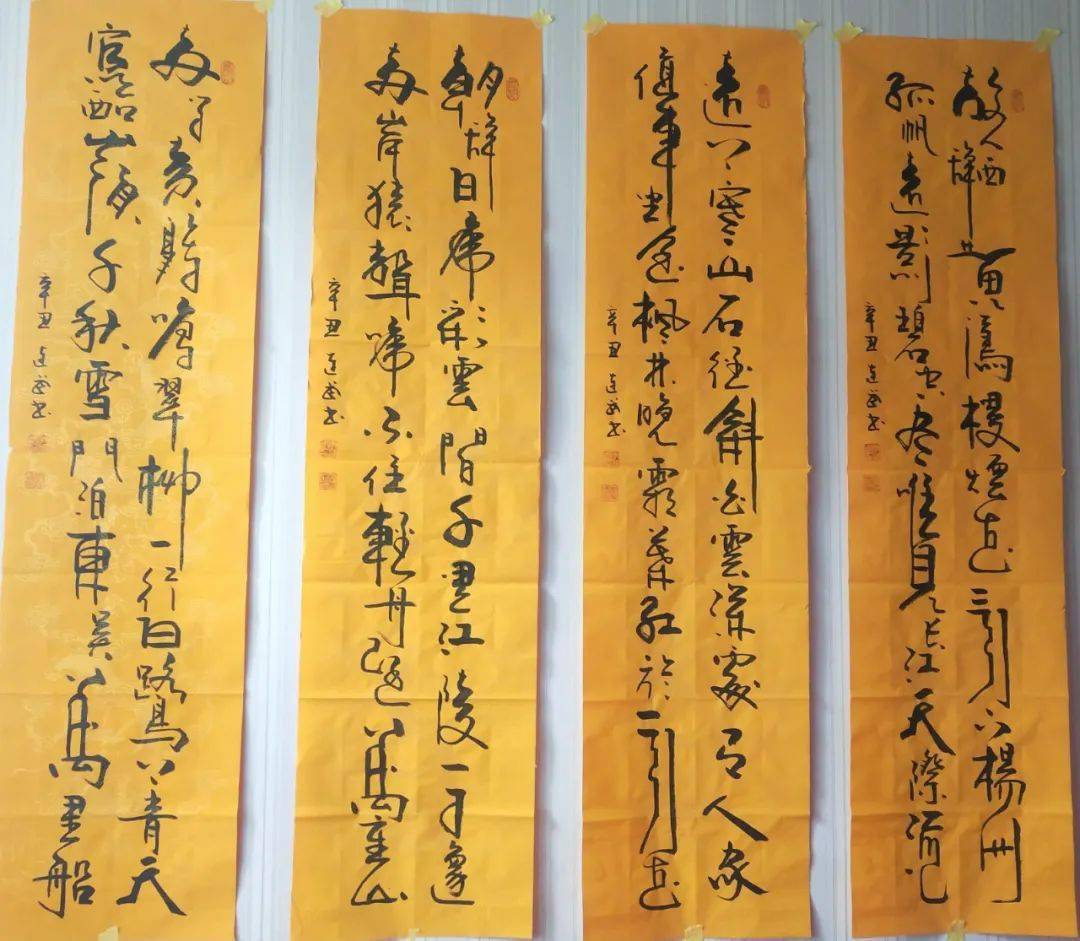 故人西辭黃鶴樓煙花三月下楊州
孤帆遠影碧空盡唯見長江天際流
辛丑
遠上寒山石徑斜白雲深處有人家
停車坐愛楓林晚霜葉紅於二月花
辛丑
朝辭白帝彩雲間千里江陵一日還
兩岸猿聲啼不住輕舟已過萬重山
辛丑
兩个黃鸝鳴翠柳一行白鷺上青天
窗含西嶺千秋雪門泊東吳萬里船
辛丑